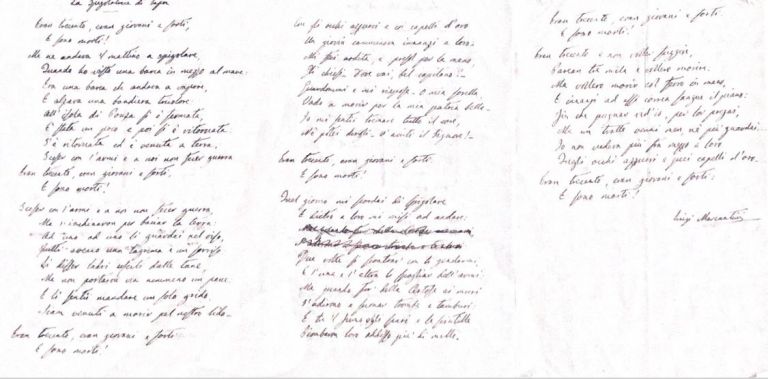 La Spigolatrice di Sapri
Eran trecento, eran giovani e forti,
E sono morti!
Me ne andava il mattino a spigolare,
Quando ho visto una barca in mezzo al mare:
Era una barca che andava a vapore,
E alzava una bandiera tricolore.
All'isola di Ponza si è fermata,
È stata un poco e poi si è ritornata.
S'è ritornata ed è venuta a terra,
Sceser con l'armi e a noi non fecer guerra
Eran trecento, eran giovani e forti.
E sono morti!
Sceser con l'armi e a noi non fecer guerra,
Ma s'inchinaron per baciar la terra.
Ad uno ad uno li guardai nel viso,
Tutti aveano una lagrima e un sorriso
Li disser ladri usciti dalle tane,
Ma non portaron via nemmeno un pane.
E li sentii mandare un solo grido,
Siam venuti a morir pel nostro lido.
Eran trecento, eran giovani e forti
E sono morti!
Con gli occhi azzurri e coi capelli d'oro
Un giovin camminava innanzi a loro.
Mi feci ardita, e presol per la mano,
Gli chiesi: Dove vai, bel capitano?
Guardommi e mi rispose: O mia sorella
Vado a morir per la mia patria bella.
Io mi sentii tremare tutto il core,
Né potei dirgli: V'aiuti il Signore!
Eran trecento, eran giovani e forti
E sono morti!
Quel giorno mi scordai di spigolare
E dietro a loro mi misi ad andare:
Due volte si scontrar con li gendarmi,
E l'una e l'altra li spogliar dell'armi:
Ma quando fur della Certosa ai muri
S'udirono a suonar trombe e tamburi.
E tra il fumo e gli spari e le scintille
Piombaron loro addosso più di mille.
Eran trecento, eran giovani e forti
E sono morti!
Eran trecento e non voller fuggire,
Parean tre mila e vollero morire:
Ma vollero morir col ferro in mano,
E innanzi ad essi correa sangue il piano:
Fin che pugnar vid'io, per lor pregai,
Ma un tratto venni men né più guardai.
Io non vedea più fra mezzo a loro
Quegli occhi azzurri e quei capelli d'oro.
Eran trecento, eran giovani e forti
E sono morti!
Luigi Mercantini